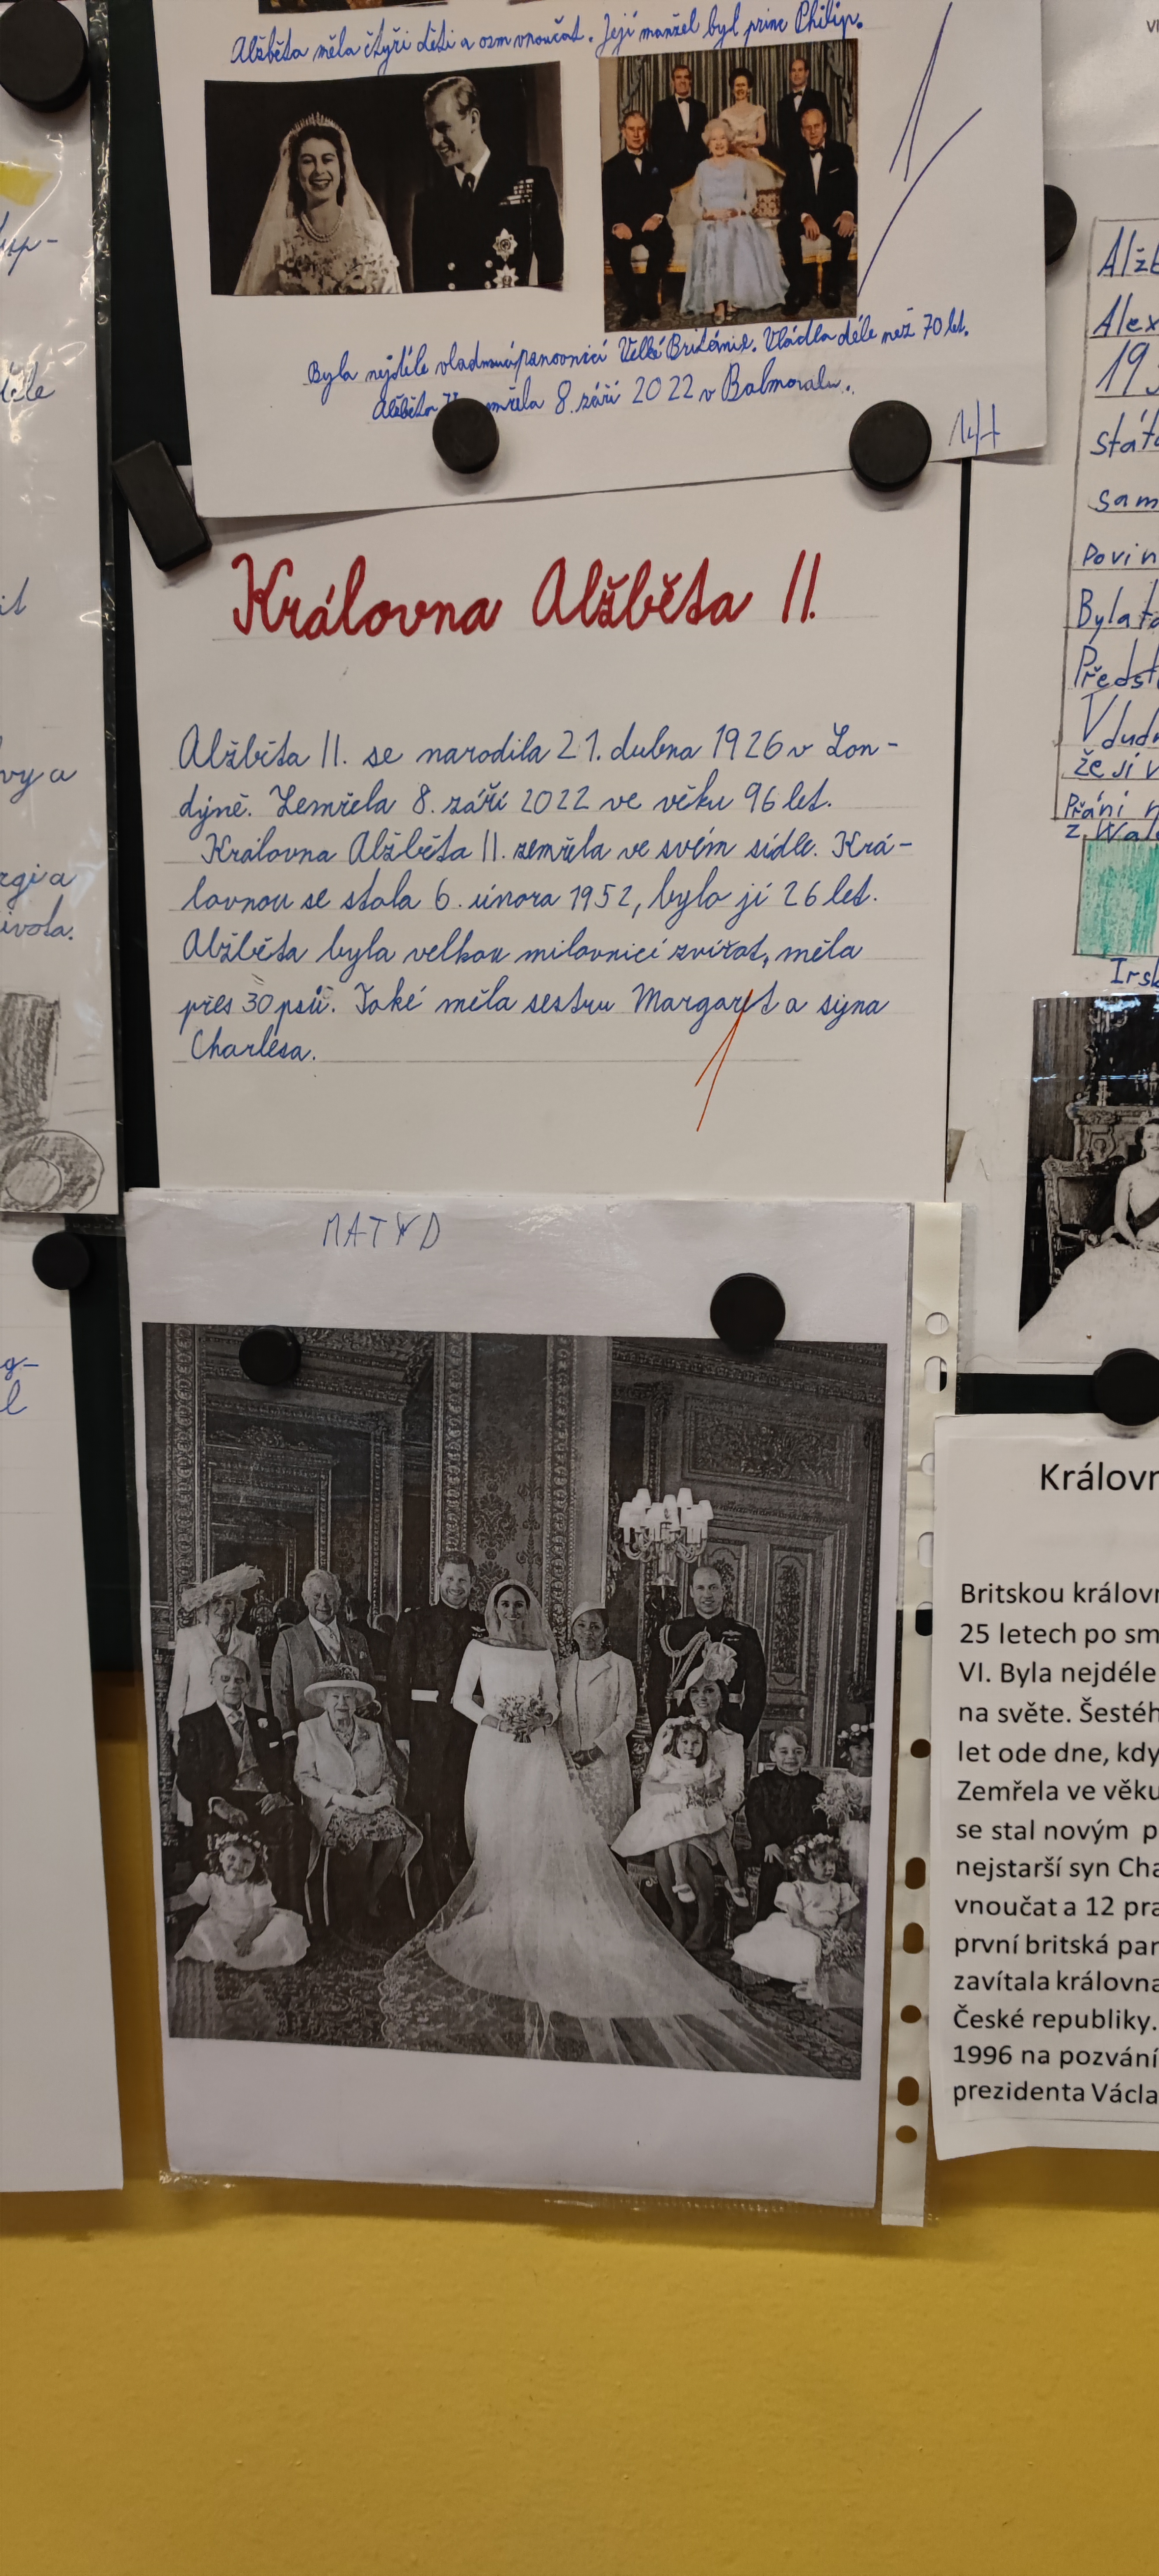 Alžběta měla čtyři děti a osm vnoučat. Její manžel byl princ Philip.
Byla nejdéle vladnoucí panovnicí Velké Británie. Vládla déle než 70 let.
Alžběta zemřela 8. září 2022 v Balmoralu.
Královna Alžběta II.
Alžběta II. se narodila 21. dubna 1926 v Lon-
dýně. Zemřela 8. září 2022 ve věku 96 let.
Královna Alžběta II. zemřela ve svém sídle. Krá-
lovnou se stala 6. února 1952, bylo jí 26 let.
Alžběta byla velkou milovnicí zvířat, měla
přes 30 psů. Také měla sestru Margaret a syna
Charlesa.
Alžb
Alex
19
stát
sam
Povin
Byla t
Předst
V dud
že jí v
Přání n
z Wal
Irsk
Královn
Britskou královn
25 letech po sm
VI. Byla nejdéle
na světe. Šestéh
let ode dne, kdy
Zemřela ve věku
se stal novým p
nejstarší syn Cha
vnoučat a 12 pra
první britská pan
zavítala královna
České republiky.
1996 na pozvání
prezidenta Václa